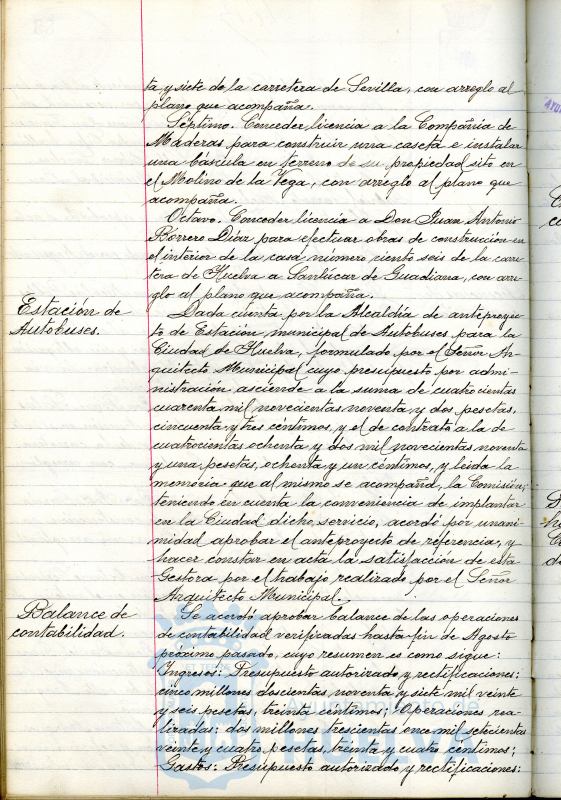 ta y siete de la carretera de Sevilla, con arreglo al
plano que acompaña.
Séptimo. Conceder licencia a la Compañía de
Maderas para construir una caseta e instalar
una báscula en terreno de su propiedad sito en
el Molino de la Vega, con arreglo al plano que
acompaña.
Octavo. Conceder licencia a Don Juan Antonio
Borrero Díaz para efectuar obras de construcción en
el interior de la casa número ciento seis de la carre
tera de Huelva a Sanlúcar de Guadiana, con arre
glo al plano que acompaña.
Estación de
Autobuses.
Dada cuenta por la Alcaldía de anteproyec
to de Estación municipal de Autobuses para la
Ciudad de Huelva, formulado por el Señor Ar
quitecto Municipal cuyo presupuesto por admi
nistración asciende a la suma de cuatrocientas
cuarenta mil novecientas noventa y dos pesetas,
cincuenta y tres céntimos, y el de contrata a la de
cuatrocientas ochenta y dos mil novecientas noventa
y una pesetas, ochenta y un céntimos, y leída la
memoria que al mismo se acompaña, la Comisión,
teniendo en cuenta la conveniencia de implantar
en la Ciudad dicho servicio, acordó por unani
midad aprobar el anteproyecto de referencia, y
hacer constar en acta la satisfacción de esta
Gestora por el trabajo realizado por el Señor
Arquitecto Municipal.
Balance de
contabilidad.
Se acordó aprobar balance de las operaciones
de contabilidad verificadas hasta fin de Agosto
próximo pasado, cuyo resumen es como sigue:
Ingresos: Presupuesto autorizado y rectificaciones;
cinco millones doscientas noventa y siete mil veinte
y seis pesetas, treinta céntimos; Operaciones rea
lizadas: dos millones trescientas once mil setecientas
veinte y cuatro pesetas, treinta y cuatro céntimos;
Gastos: Presupuesto autorizado y rectificaciones:
Ayuntamiento de
HUELVA